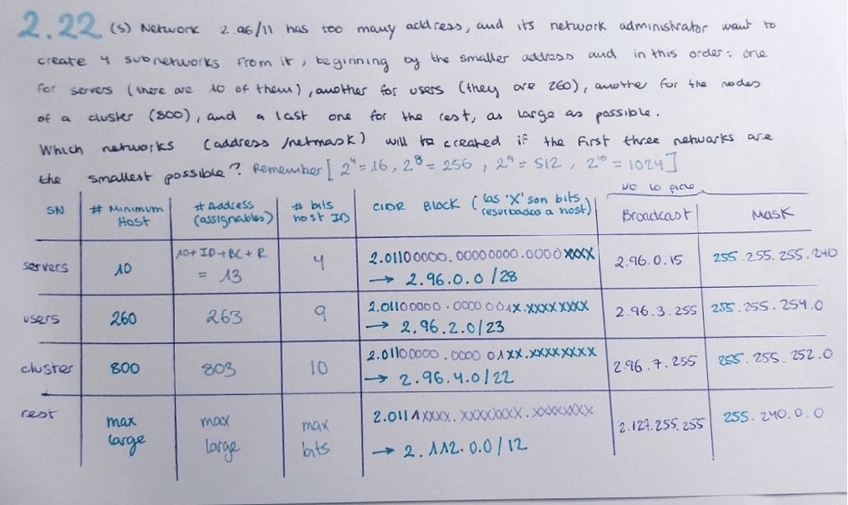 2.22 (S) Network 2.96/11 has too many address, and its network administrator want to
create 4 subnetworks from it, beginning by the smaller address and in this order: one
for servers (there are 10 of them), another for users (they are 260), another for the nodes
of a cluster (800), and a last one for the rest, as large as possible.
Which networks (address /netmask) will be created if the first three networks are
the smallest possible? Remember [2^4 = 16, 2^8 = 256, 2^9 = 512, 2^10 = 1024]
NO LO PIDE
SN # Minimum Host # Address (assignables) # bits host ID CIDR BLOCK (las 'X' son bits reservados a host) Broadcast Mask
servers 10 10 + ID + BC + R = 13 4 2.01100000.00000000.0000XXXX → 2.96.0.0/28 2.96.0.15 255.255.255.240
users 260 263 9 2.01100000.0000001X.XXXXXXXX → 2.96.2.0/23 2.96.3.255 255.255.254.0
cluster 800 803 10 2.01100000.000001XX.XXXXXXXX → 2.96.4.0/22 2.96.7.255 255.255.252.0
rest max large max large max bits 2.0111XXXX.XXXXXXXX.XXXXXXXX → 2.112.0.0/12 2.127.255.255 255.240.0.0